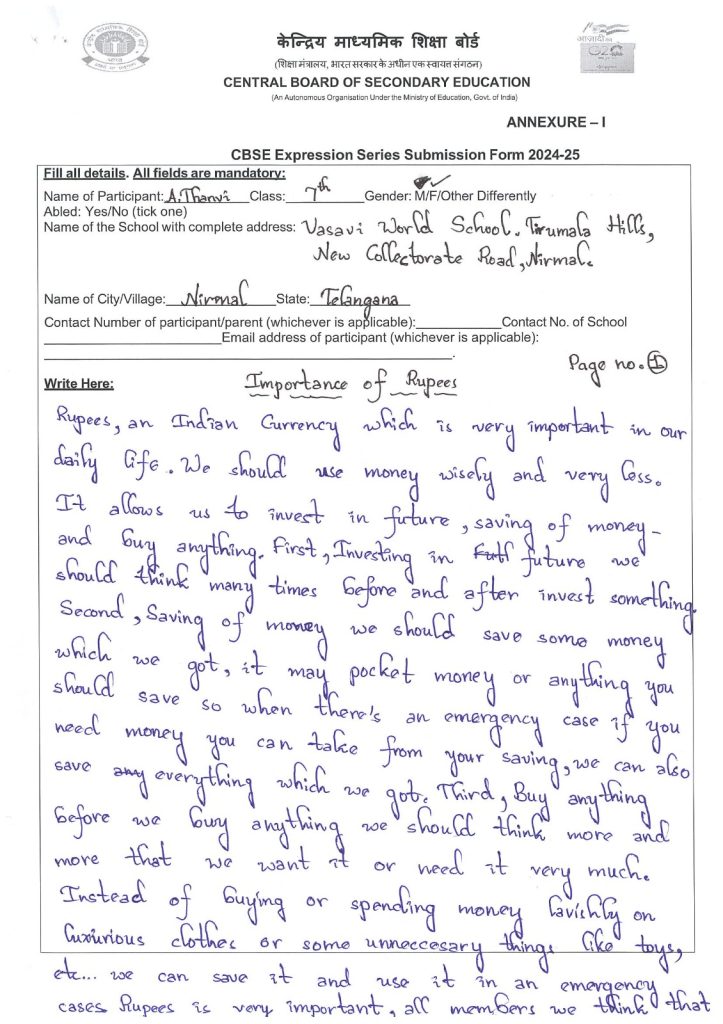 केन्द्रिय माध्यमिक शिक्षा बोर्ड
(शिक्षा मंत्रालय, भारत सरकार के अधीन एक स्वायत्त संगठन)
CENTRAL BOARD OF SECONDARY EDUCATION
(An Autonomous Organisation Under the Ministry of Education, Govt. of India)
ANNEXURE – I
CBSE Expression Series Submission Form 2024-25
Fill all details. All fields are mandatory:
Name of Participant: A.Thanvi Class: 7th Gender: M/F/Other Differently
Abled: Yes/No (tick one)
Name of the School with complete address: Vasavi World School. Tirumala Hills,
New Collectorate Road, Nirmal.
Name of City/Village: Nirmal State: Telangana
Contact Number of participant/parent (whichever is applicable): Contact No. of School
Email address of participant (whichever is applicable):
Page no. 1
Write Here: Importance of Rupees
Rupees, an Indian Currency which is very important in our
daily life. We should use money wisely and very less.
It allows us to invest in future, saving of money-
and buy anything. First, Investing in future we
should think many times before and after invest something.
Second, Saving of money we should save some money
which we got, it may pocket money or anything you
should save so when there's an emergency case if you
need money you can take from your saving, we can also
save any everything which we got. Third, Buy anything
before we buy anything we should think more and
more that we want it or need it very much.
Instead of buying or spending money lavishly on
luxurious clothes or some unneccesary things like toys,
etc... we can save it and use it in an emergency
cases Rupees is very important, all members we think that